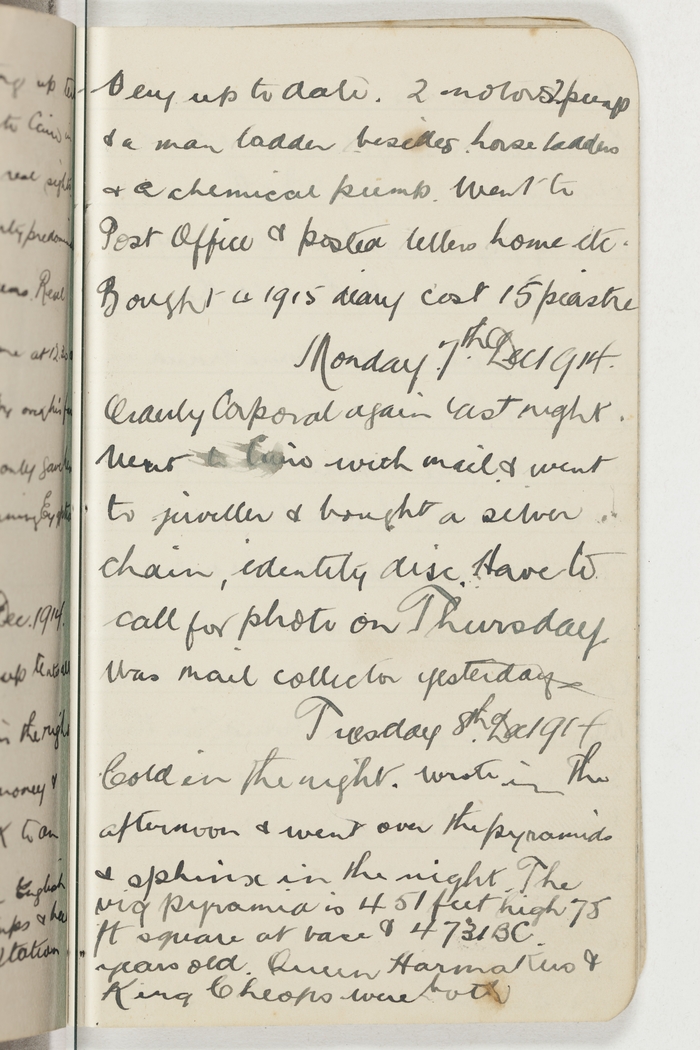 Very up to date. 2 motors 2 pump
& a man ladder besides horse ladders
& a chemical pump. Went to
Post Office & posted letters home etc.
Bought a 1915 diary cost 15 piastre
Monday 7th Dec 1914.
Orderly Corporal again last night.
Went to Cairo with mail & went
to jeweller & bought a silver
chain, identity disc. Have to
call for photo on Thursday
Was mail collector yesterday
Tuesday 8th Dec 1914
Cold in the night. Wrote in the
afternoon & went over the pyramids
& sphinx in the night. The
big pyramid is 451 feet high 75
ft square at base & 4731 BC.
years old. Queen Harmakus &
King Cheops were both